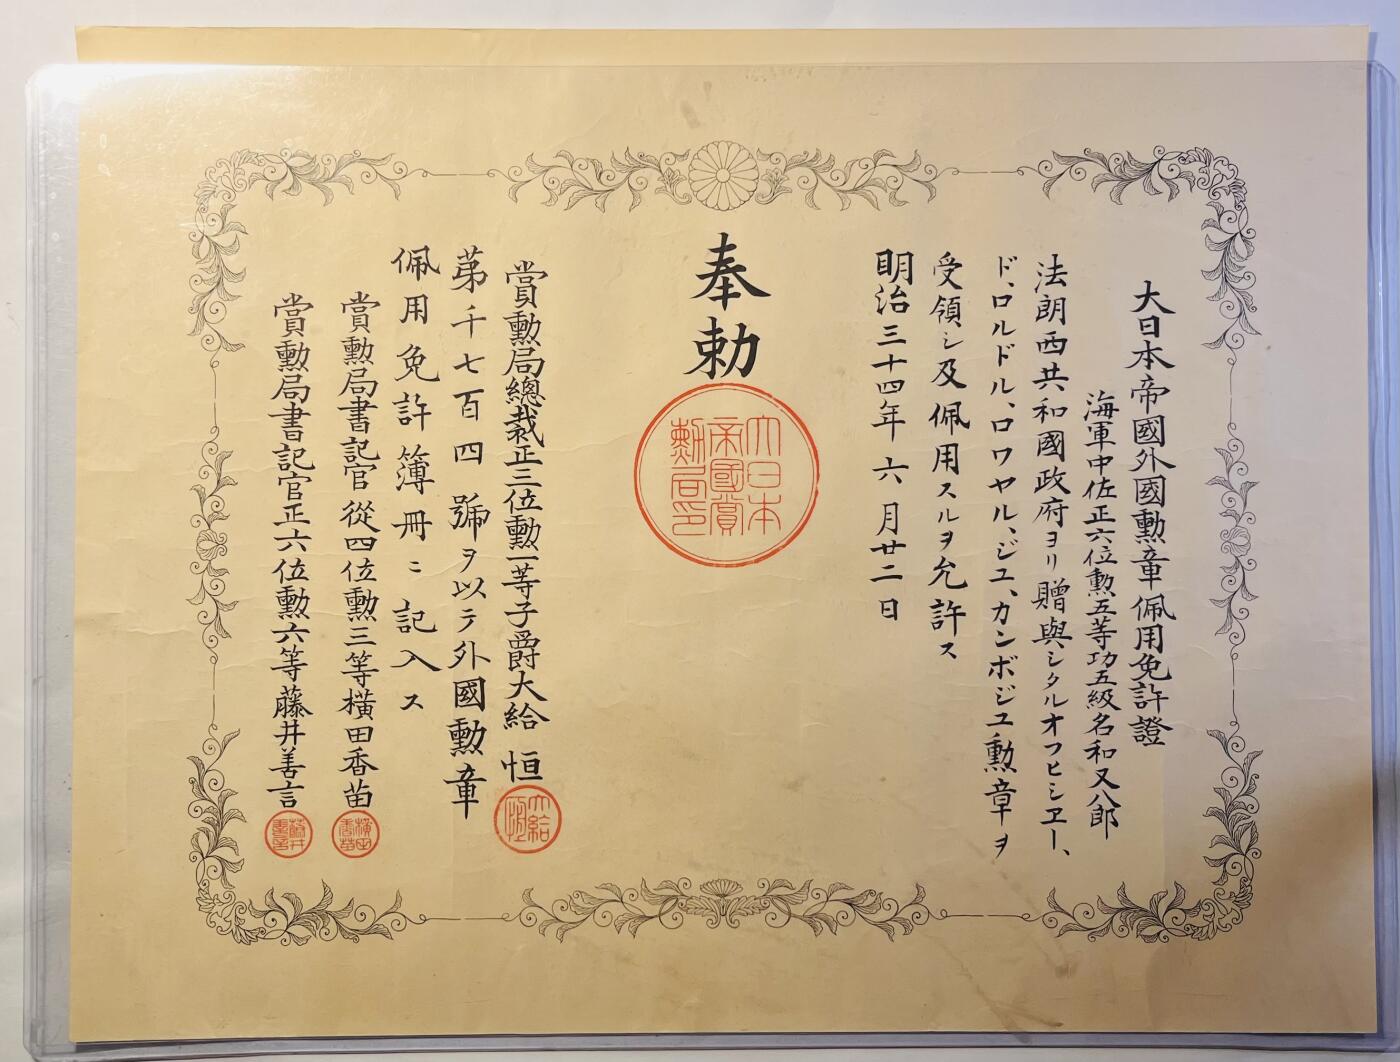 大日本帝國外國勲章佩用免許證
海軍中佐正六位勲五等功五級名和又八郎
法朗西共和國政府ヨリ贈與シタルオフヒシヱー、
ド、ロルドル、ロワヤル、ジユ、カンボジユ勲章ヲ
受領シ及佩用スルヲ允許ス
明治三十四年六月廿二日
奉勅
大日本
帝國賞
勲局印
賞勲局總裁正三位勲一等子爵大給恒
大給
恒
第千七百四號ヲ以テ外國勲章
佩用免許簿冊ニ記入ス
賞勲局書記官從四位勲三等横田香苗
横田
香苗
賞勲局書記官正六位勲六等藤井善言
藤井
善言